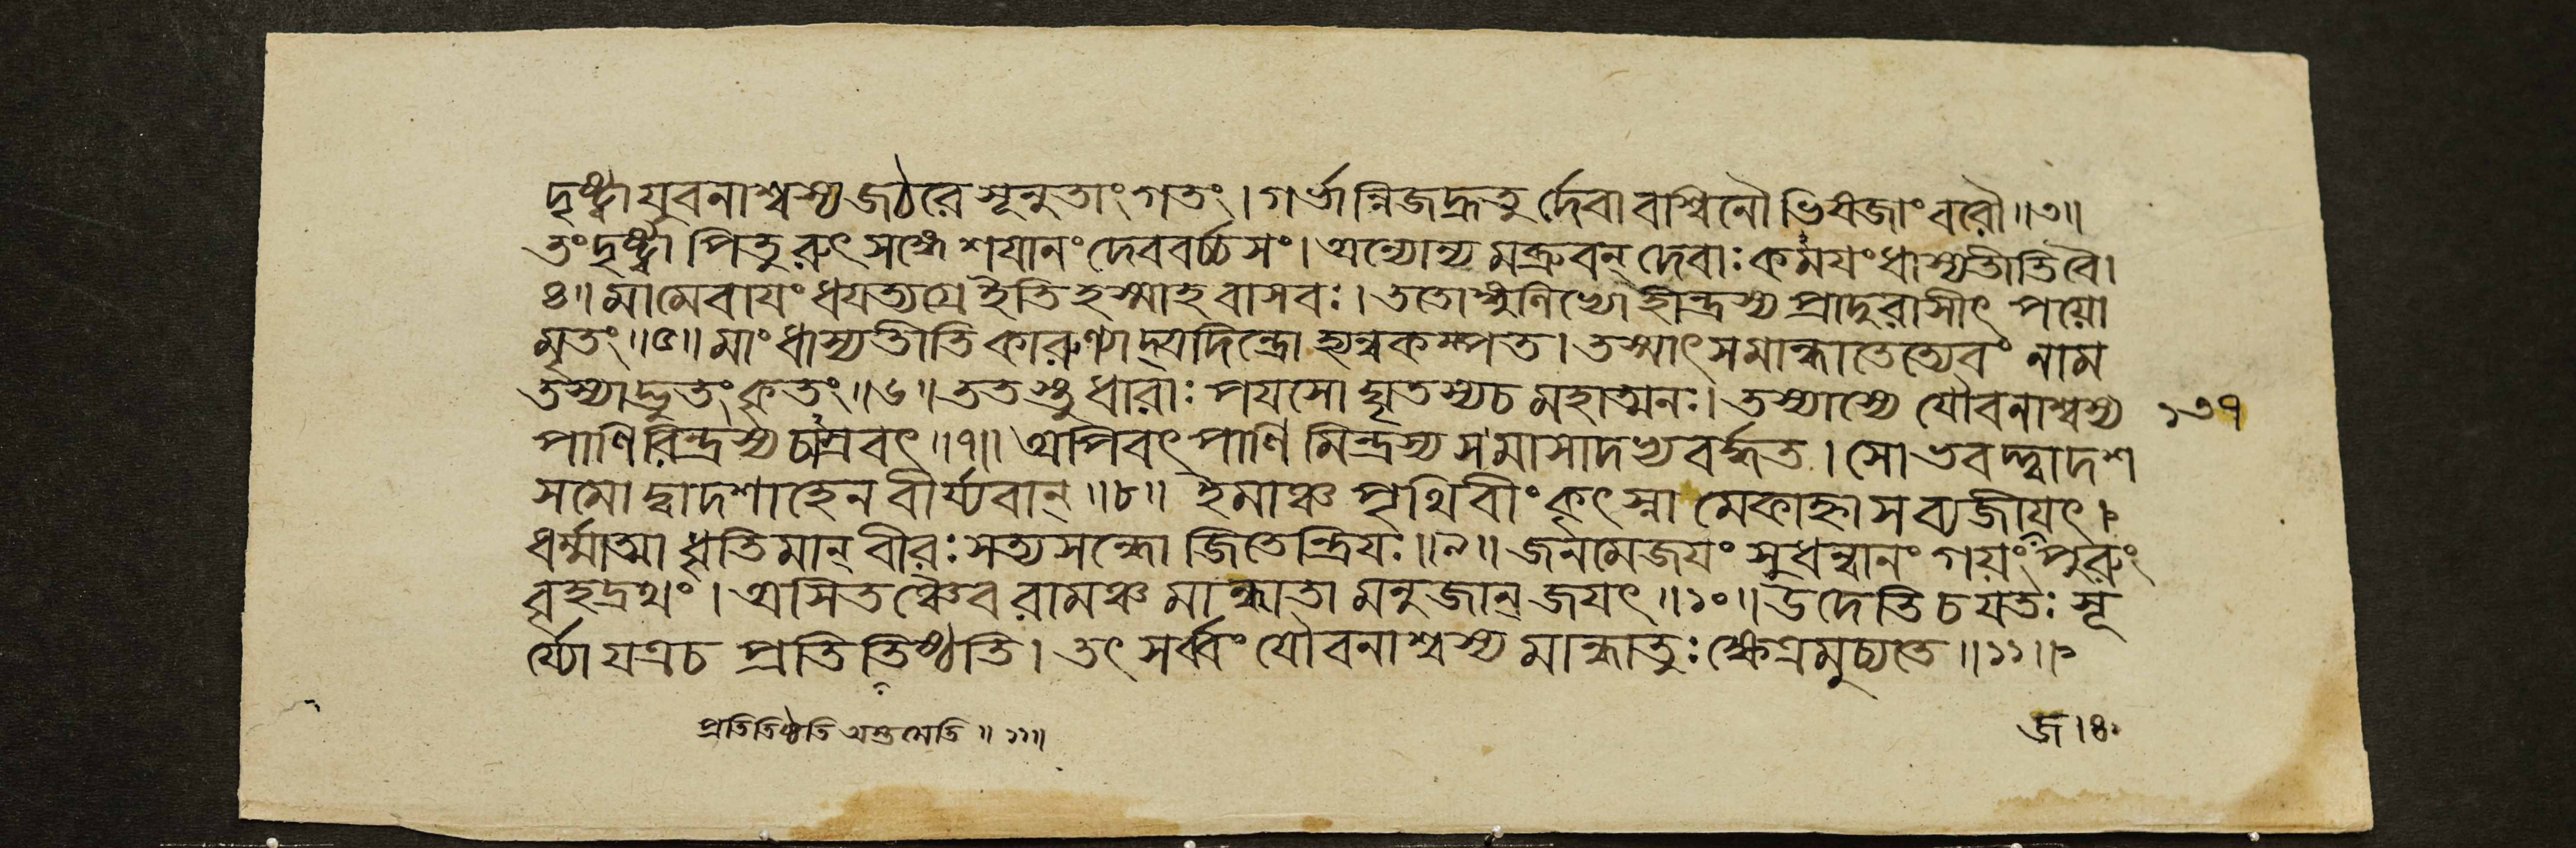 দৃষ্ট্বা যুবনাশ্বস্য জঠরে সূনুতাং গতং । গর্ভান্নিজহ্রতু র্দেবা বাশ্বিনৌ ভিষজাং বরৌ ॥৩॥
তং দৃষ্ট্বা পিতুরুৎসঙ্গে শয়ানং দেববর্চ্চসং । অন্যোন্য মব্রুবন্ দেবাঃ কময়ং ধাস্যতীতি বৈ।
৪॥ মামেবায়ং ধয়ত্যগ্রে ইতি হস্মাহ বাসবঃ । ততোঙ্গুলিভ্যো হীন্দ্রস্য প্রাদুরাসীৎ পয়ো
মৃতং ॥৫॥ মাং ধাস্যতীতি কারুণ্যাদ্যদিন্দ্রো হ্যন্বকম্পত । তস্মাৎ স মান্ধাতেত্যেবং নাম
তস্যাদ্ভুতং কৃতং ॥৬॥ ততস্তু ধারাঃ পয়সো ঘৃতস্য চ মহাত্মনঃ । তস্যাস্যে যৌবনাশ্বস্য ১৩৭
পাণিরিন্দ্রস্য চাস্রবৎ ॥৭॥ অপিবৎ পাণি মিন্দ্রস্য সমাসাদভ্যবর্দ্ধত । সোভবদ্দ্বাদশ
সমো দ্বাদশাহেন বীর্য্যবান্ ॥৮॥ ইমাঞ্চ পৃথিবীং কৃৎস্না মেকাহ্না স ব্যজীয়ৎ ।
ধর্ম্মাত্মা ধৃতিমান্ বীরঃ সত্যসন্ধো জিতেন্দ্রিয়ঃ ॥৯॥ জনমেজয়ং সুধন্বানং গয়ং পুরুং
বৃহদ্রথং । অসিতঞ্চৈব রামঞ্চ মান্ধাতা মনুজান্ জয়ৎ ॥১০॥ উদেতি চ যতঃ সূ
র্য্যো যত্র চ প্রতিতিষ্ঠতি । তৎ সর্ব্বং যৌবনাশ্বস্য মান্ধাতুঃ ক্ষেত্রমুচ্যতে ॥১১॥
প্রতিতিষ্ঠতি অস্তমেতি ॥ ১১॥